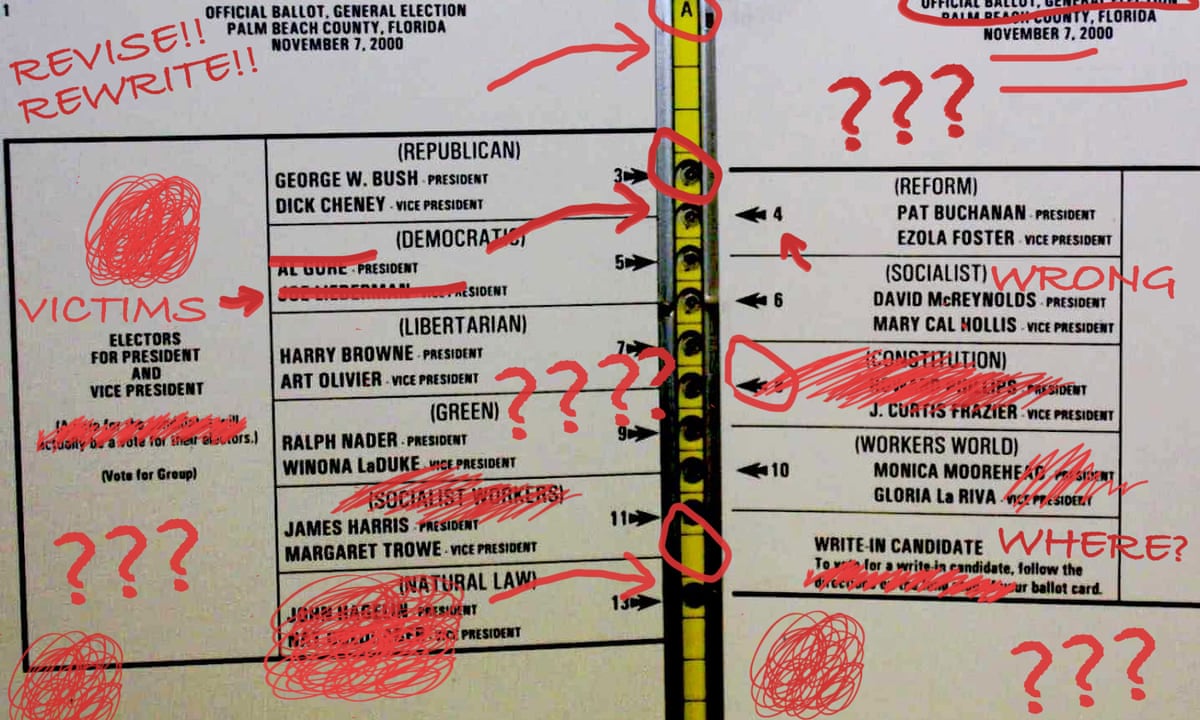 1
OFFICIAL BALLOT, GENERAL ELECTION
PALM BEACH COUNTY, FLORIDA
NOVEMBER 7, 2000
REVISE!!
REWRITE!!
A
OFFICIAL BALLOT, GENERAL ELECTION
PALM BEACH COUNTY, FLORIDA
NOVEMBER 7, 2000
???
VICTIMS
ELECTORS
FOR PRESIDENT
AND
VICE PRESIDENT
actually be a vote for their electors.)
(Vote for Group)
???
(REPUBLICAN)
GEORGE W. BUSH - PRESIDENT
DICK CHENEY - VICE PRESIDENT
3
(DEMOCRATIC)
AL GORE - PRESIDENT
JOE LIEBERMAN - VICE PRESIDENT
5
(LIBERTARIAN)
HARRY BROWNE - PRESIDENT
ART OLIVIER - VICE PRESIDENT
7
????
(GREEN)
RALPH NADER - PRESIDENT
WINONA LaDUKE - VICE PRESIDENT
9
(SOCIALIST WORKERS)
JAMES HARRIS - PRESIDENT
MARGARET TROWE - VICE PRESIDENT
11
(NATURAL LAW)
JOHN HAGELIN - PRESIDENT
PRESIDENT
13
(REFORM)
4 PAT BUCHANAN - PRESIDENT
EZOLA FOSTER - VICE PRESIDENT
(SOCIALIST) WRONG
6 DAVID McREYNOLDS - PRESIDENT
MARY CAL HOLLIS - VICE PRESIDENT
(CONSTITUTION)
PHILLIPS - PRESIDENT
J. CURTIS FRAZIER - VICE PRESIDENT
(WORKERS WORLD)
10 MONICA MOOREHEAD - PRESIDENT
GLORIA La RIVA - VICE PRESIDENT
WRITE-IN CANDIDATE WHERE?
To vote for a write-in candidate, follow the
your ballot card.
???